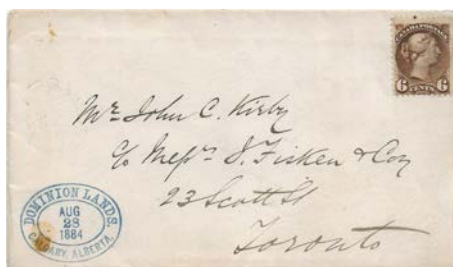 CANADA POSTAGE
6 CENTS 6
Mr John C. Kirby
c/o Messrs J. Fisken & Coy
23 Scott St
Toronto
DOMINION LANDS,
AUG
28
1884
CALGARY, ALBERTA,